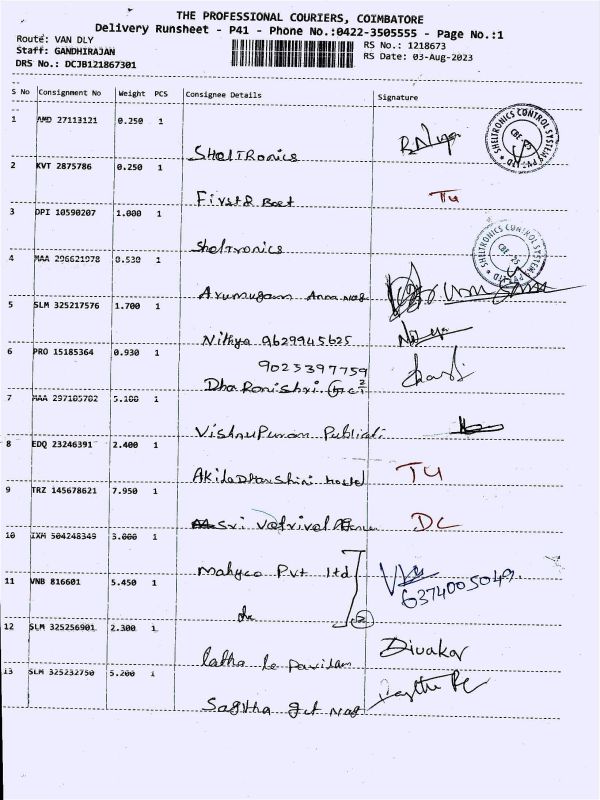 THE PROFESSIONAL COURIERS, COIMBATORE
Delivery Runsheet - P41 - Phone No.:0422-3505555 - Page No.:1
Route: VAN DLY
RS No.: 1218673
Staff: GANDHIRAJAN
RS Date: 03-Aug-2023
DRS No.: DCJB121867301
S No Consignment No Weight PCS Consignee Details Signature
1 AMD 27113121 0.250 1
SHELTRONICS CONTROL SYSTEMS PVT LTD CBE-25
SHelTRonics
2 KVT 2875786 0.250 1
Tu
3 DPI 10590207 1.000 1
Sheltronics
SHELTRONICS CONTROL SYSTEM PVT LTD CBE-25
4 MAA 296621978 0.530 1
Arumugam Anna nag
5 SLM 325217576 1.700 1
Nithya 9629945625
6 PRO 15185364 0.930 1
9025397759
7 MAA 297105702 5.100 1
Vishnupuram Publicati
8 EDQ 23246391 2.400 1
AkilaDharshini Hostel TU
9 TRZ 145678621 7.950 1
Sri Vetrivel DC
10 IXM 504248349 3.000 1
Mahyco Pvt ltd
6374005049
11 VNB 816601 5.450 1
do 2
12 SLM 325256901 2.300 1
latha Divakar
13 SLM 325232750 5.200 1